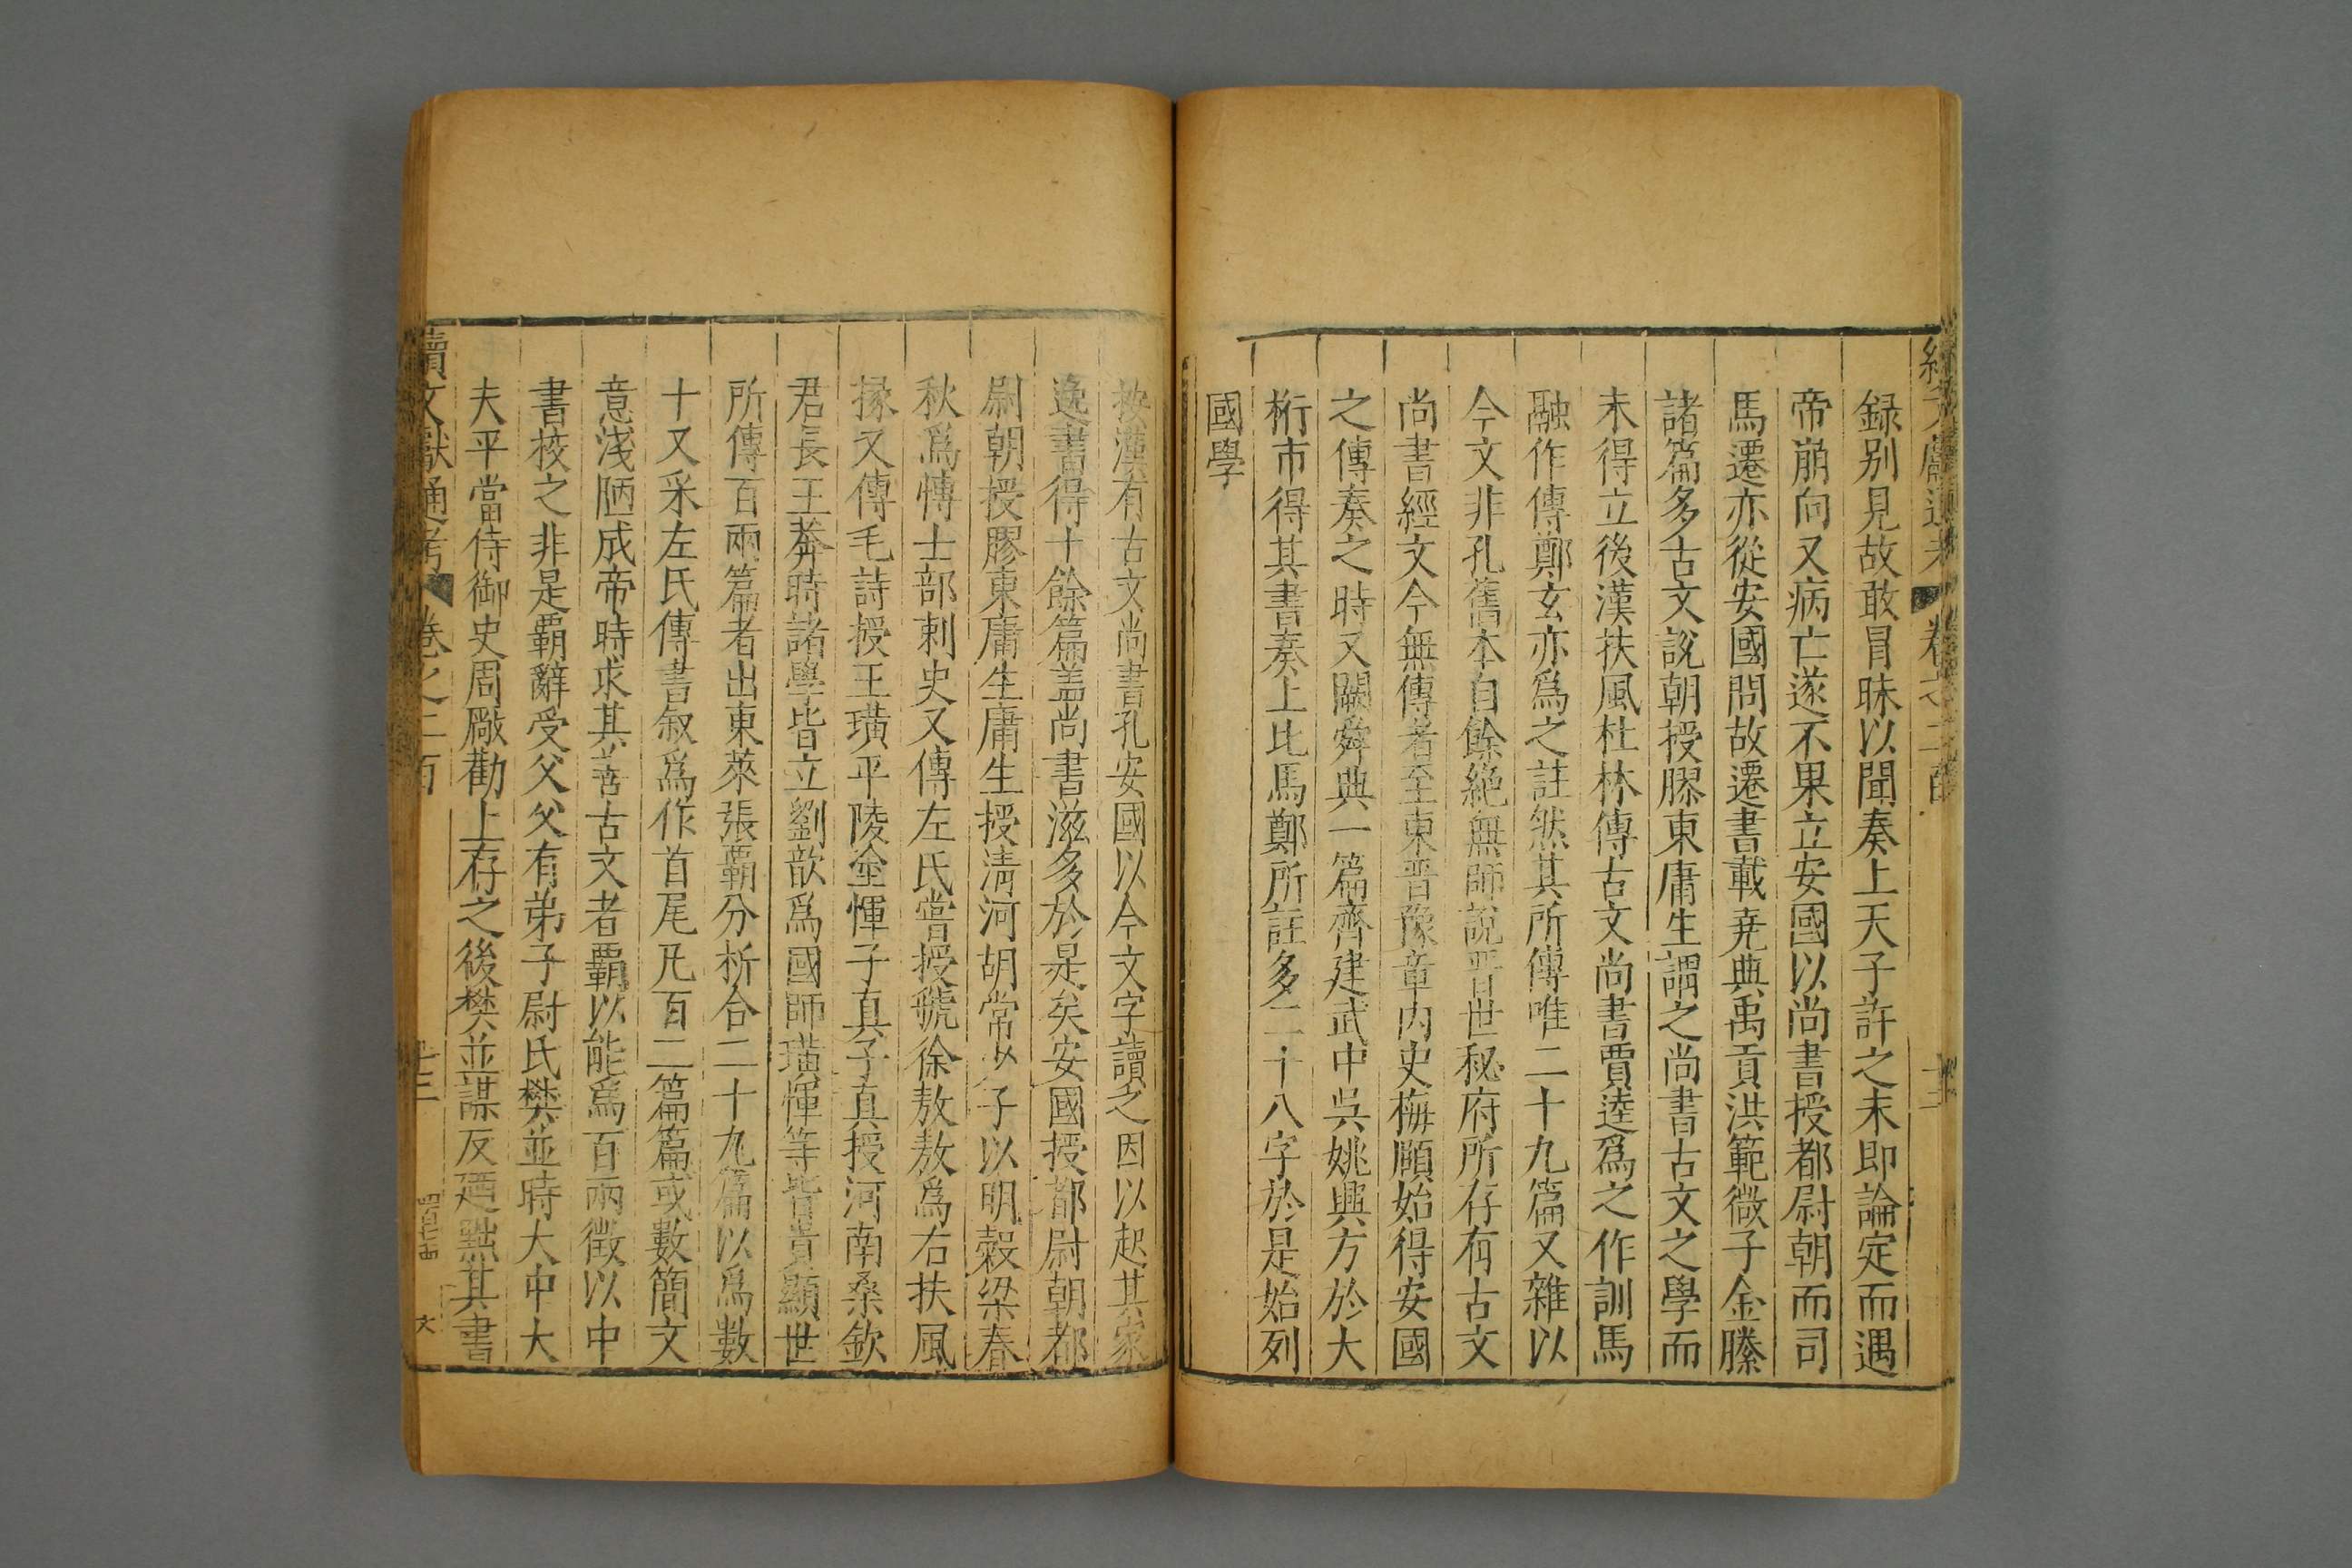 録别見故敢冒昧以聞奏上天子許之未即論定而遇
帝崩向又病亡遂不果立安國以尚書授都尉朝而司
馬遷亦從安國問故遷書載堯典禹貢洪範微子金縢
諸篇多古文說朝授膠東庸生謂之尚書古文之學而
未得立後漢扶風杜林傳古文尚書賈逵爲之作訓馬
融作傳鄭玄亦爲之註然其所傳唯二十九篇又雜以
今文非孔舊本自餘絶無師說晋世秘府所存有古文
尚書經文今無傳者至東晋豫章内史梅賾始得安國
之傳奏之時又闕舜典一篇齊建武中吳姚興方於大
桁市得其書奏上比馬鄭所註多二十八字於是始列
國學
按漢有古文尚書孔安國以今文字讀之因以起其家
逸書得十餘篇盖尚書滋多於是矣安國授都尉朝都
尉朝授膠東庸生庸生授清河胡常少子以明穀梁春
秋爲愽士部刺史又傳左氏嘗授虢徐敖敖爲右扶風
掾又傳毛詩授王璜平陵塗惲子真子真授河南桑欽
君長王莽時諸學皆立劉歆爲國師璜惲等皆貴顯世
所傳百兩篇者出東萊張覇分析合二十九篇以爲數
十又采左氏傳書叙爲作首尾凡百二篇篇或數簡文
意淺陋成帝時求其善古文者覇以能爲百兩徵以中
書校之非是覇辭受父父有弟子尉氏樊並時大中大
夫平當侍御史周敞勸上存之後樊並謀反廼黜其書
續文獻通考 卷之二百
十三